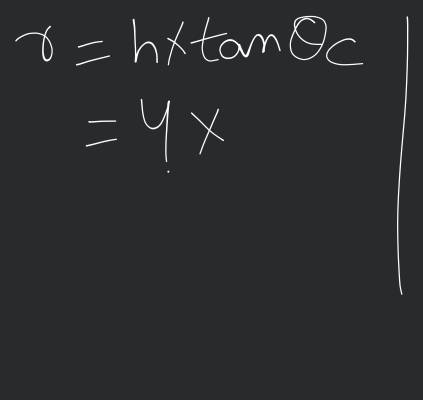 r = h×tanθc
= 4×